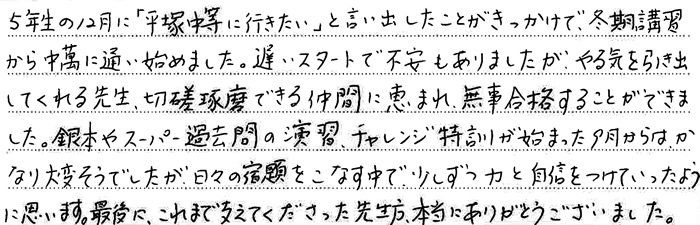 5年生の12月に「平塚中等に行きたい」と言い出したことがきっかけで、冬期講習
から中萬に通い始めました。遅いスタートで不安もありましたが、やる気を引き出
してくれる先生、切磋琢磨できる仲間に恵まれ、無事合格することができま
した。銀本やスーパー過去問の演習、チャレンジ特訓が始まった9月からは、か
なり大変そうでしたが、日々の宿題をこなす中で、少しずつ力と自信をつけていったよう
に思います。最後に、これまで支えてくださった先生方、本当にありがとうございました。